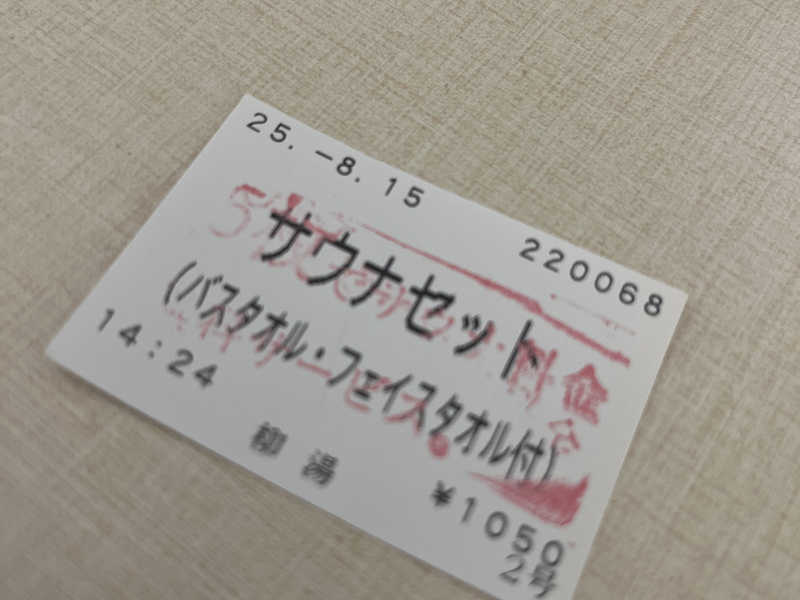 25.-8.15
220068
サウナセット
(バスタオル・フェイスタオル付)
14:24
柳湯
¥1050
2号